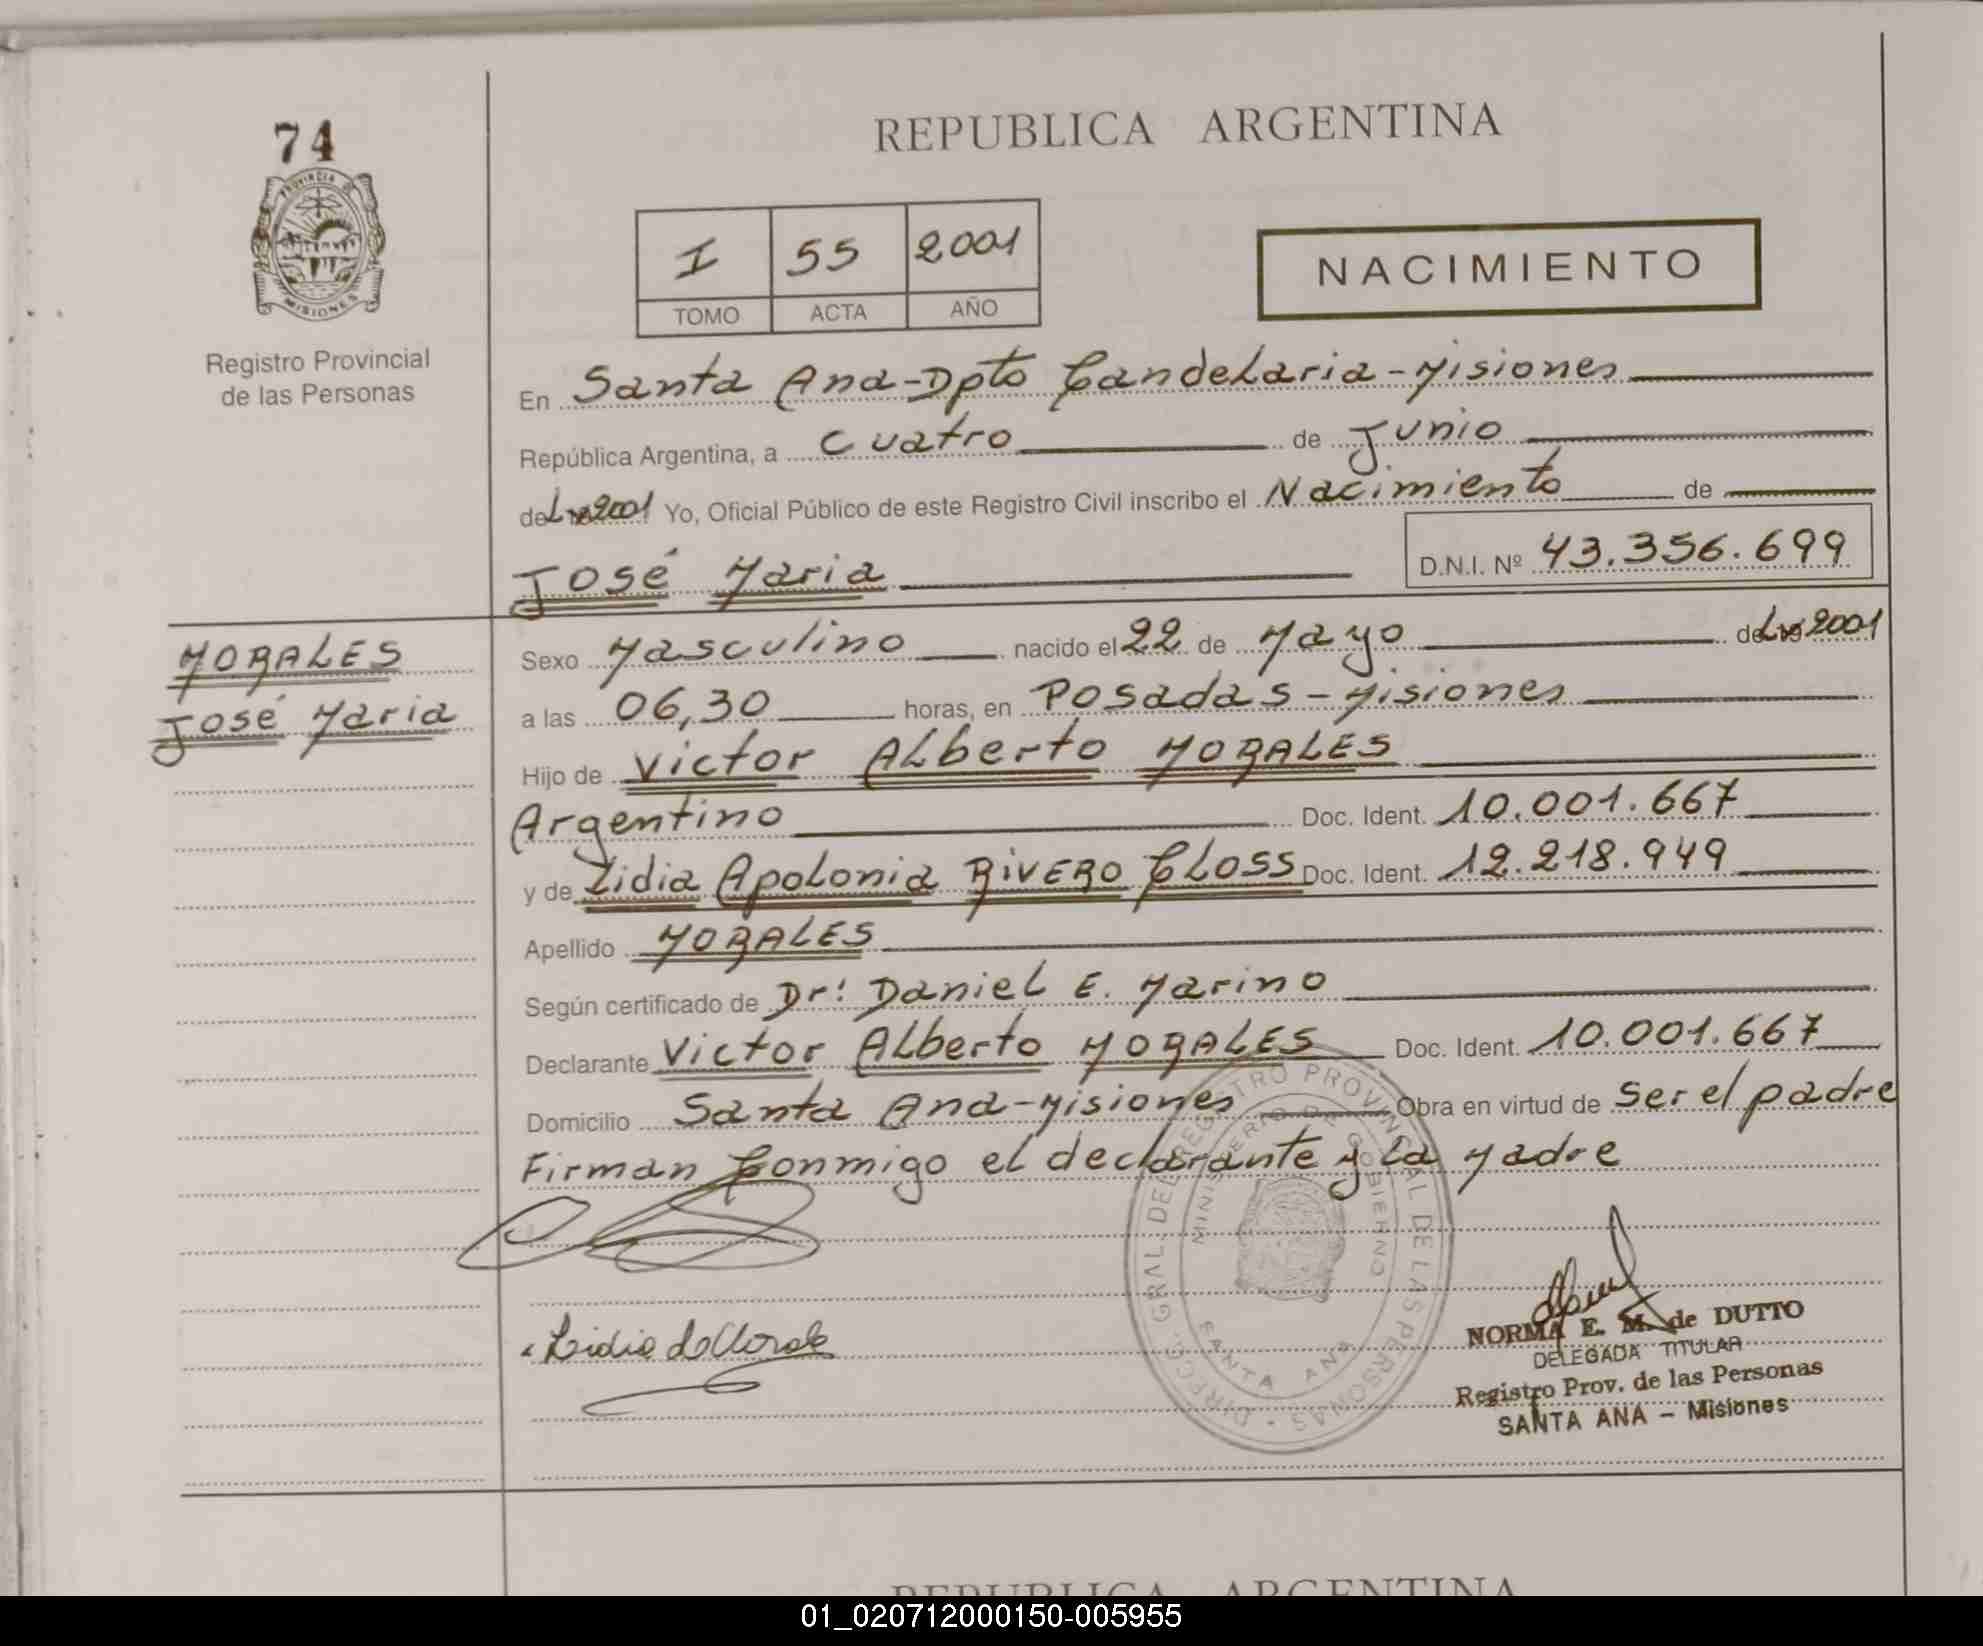 74
PROVINCIA DE
MISIONES
Registro Provincial
de las Personas
REPUBLICA ARGENTINA
I 55 2001
TOMO ACTA AÑO
NACIMIENTO
En Santa Ana-Dpto Candelaria-Misiones
República Argentina, a cuatro de Junio
del 2001 Yo, Oficial Público de este Registro Civil inscribo el Nacimiento de
José Maria D.N.I. Nº 43.356.699
MORALES
José Maria
Sexo Masculino nacido el 22 de Mayo del 2001
a las 06,30 horas, en Posadas-Misiones
Hijo de Victor Alberto MORALES
Argentino Doc. Ident. 10.001.667
y de Lidia Apolonia RIVERO CLOSS Doc. Ident. 12.218.949
Apellido MORALES
Según certificado de Dr: Daniel E. Marino
Declarante Victor Alberto MORALES Doc. Ident. 10.001.667
Domicilio Santa Ana-Misiones Obra en virtud de ser el padre
Firman Conmigo el declarante y la Madre
DIRECC. GRAL DEL REGISTRO PROVINCIAL DE LAS PERSONAS
MINISTERIO DE GOBIERNO
SANTA ANA
Lidia
NORMA E. M. de DUTTO
DELEGADA TITULAR
Registro Prov. de las Personas
SANTA ANA - Misiones
REPUBLICA ARGENTINA
01_020712000150-005955